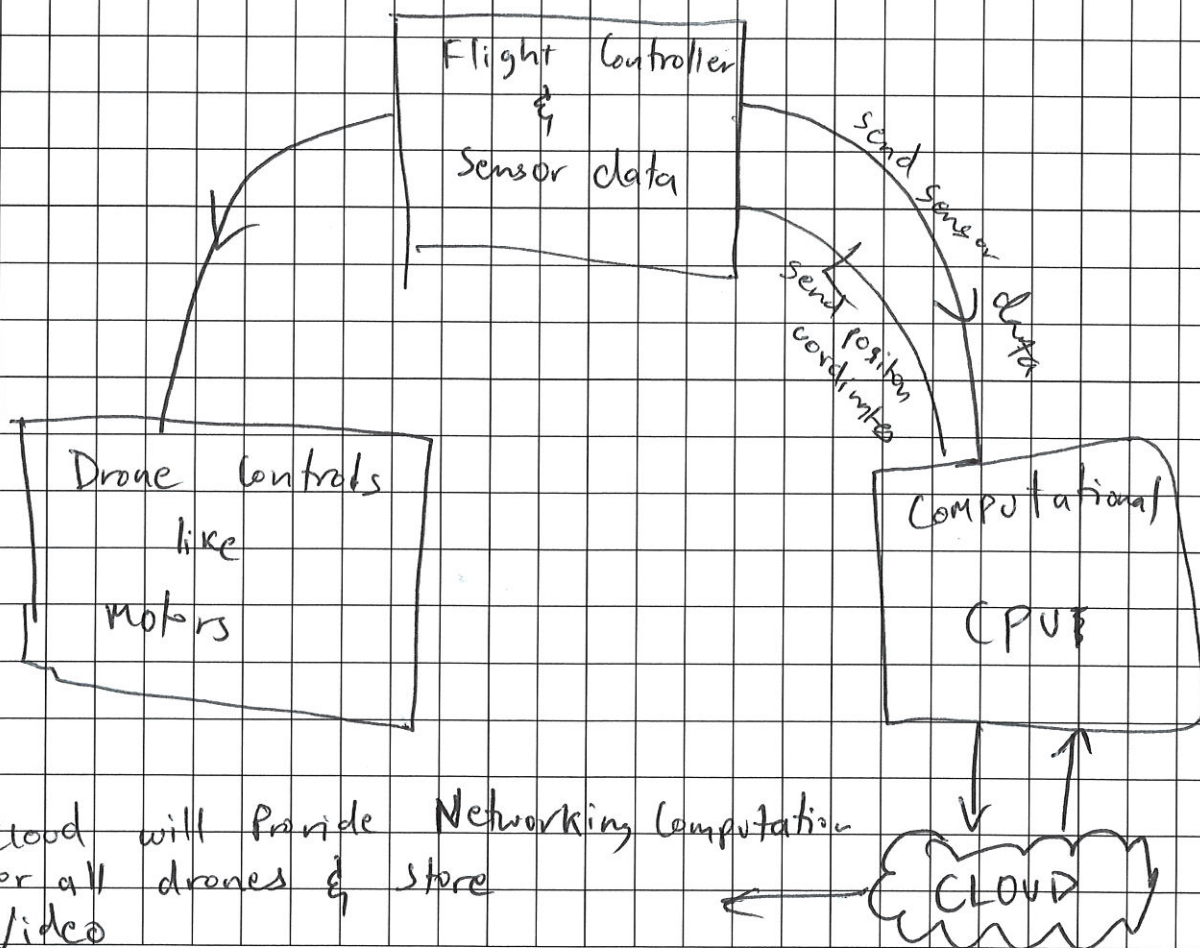 Flight Controller
&
Sensor data
send sensor data
send position
cordinates
Drone Controls
like
motors
Computational
CPU
loud will Provide Networking Computation
or all drones & store
Video
CLOUD